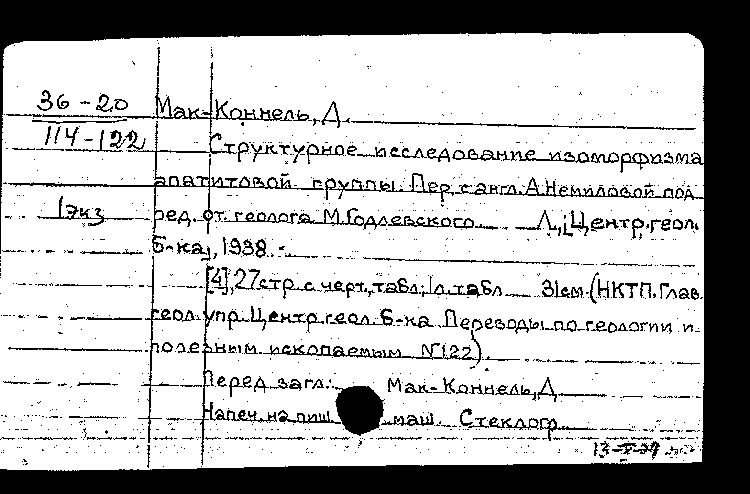 36-20 Мак-Коннель, Д.
114-122 Структурное исследование изоморфизма
апатитовой группы. Пер. с англ. А. Немиловой под
1 экз ред. от. геолога М. Годлевского. Л., [Центр. геол.
б-ка], 1938.-
[4], 27 стр. с черт., табл.; 1 л. табл. 31 см. (НКТП. Глав.
геол. упр. Центр. геол. б-ка. Переводы по геологии и
полезным ископаемым N122).
Перед загл.: Мак-Коннель, Д.
Напеч. на пиш. маш. Стеклогр.
13-